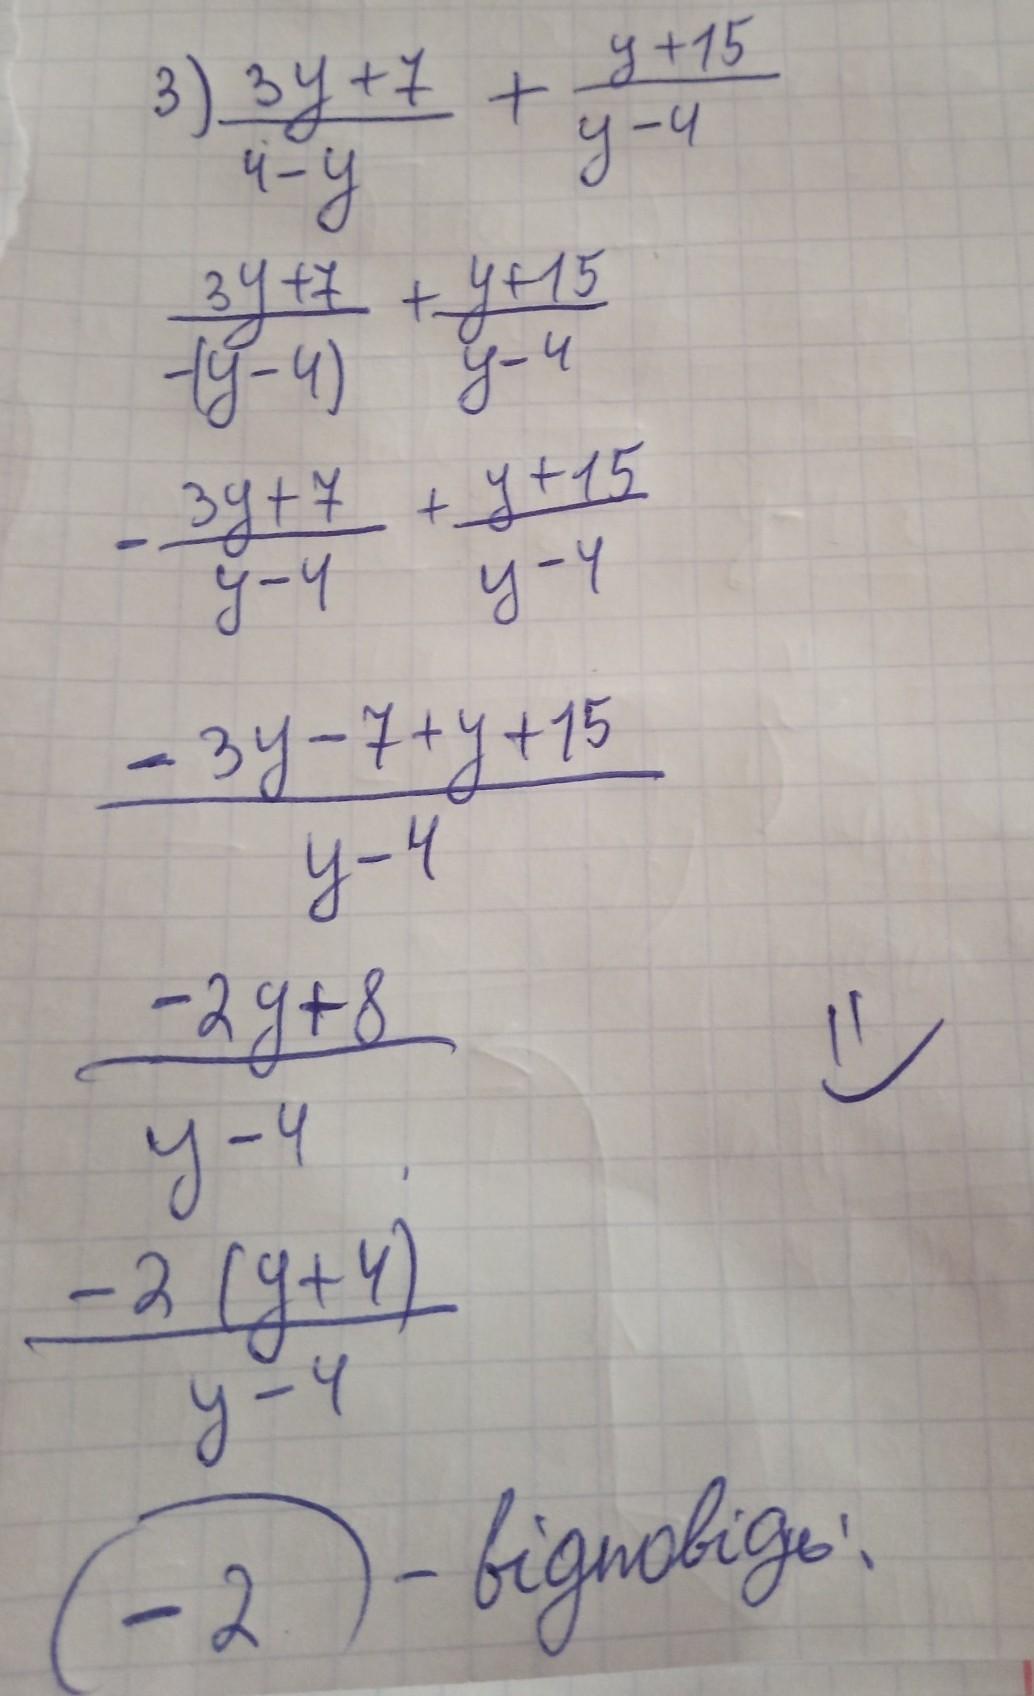 3) (3y+7)/(4-y) + (y+15)/(y-4)
(3y+7)/(-(y-4)) + (y+15)/(y-4)
- (3y+7)/(y-4) + (y+15)/(y-4)
(-3y-7+y+15)/(y-4)
(-2y+8)/(y-4)
(-2(y+4))/(y-4)
-2 - відповідь.